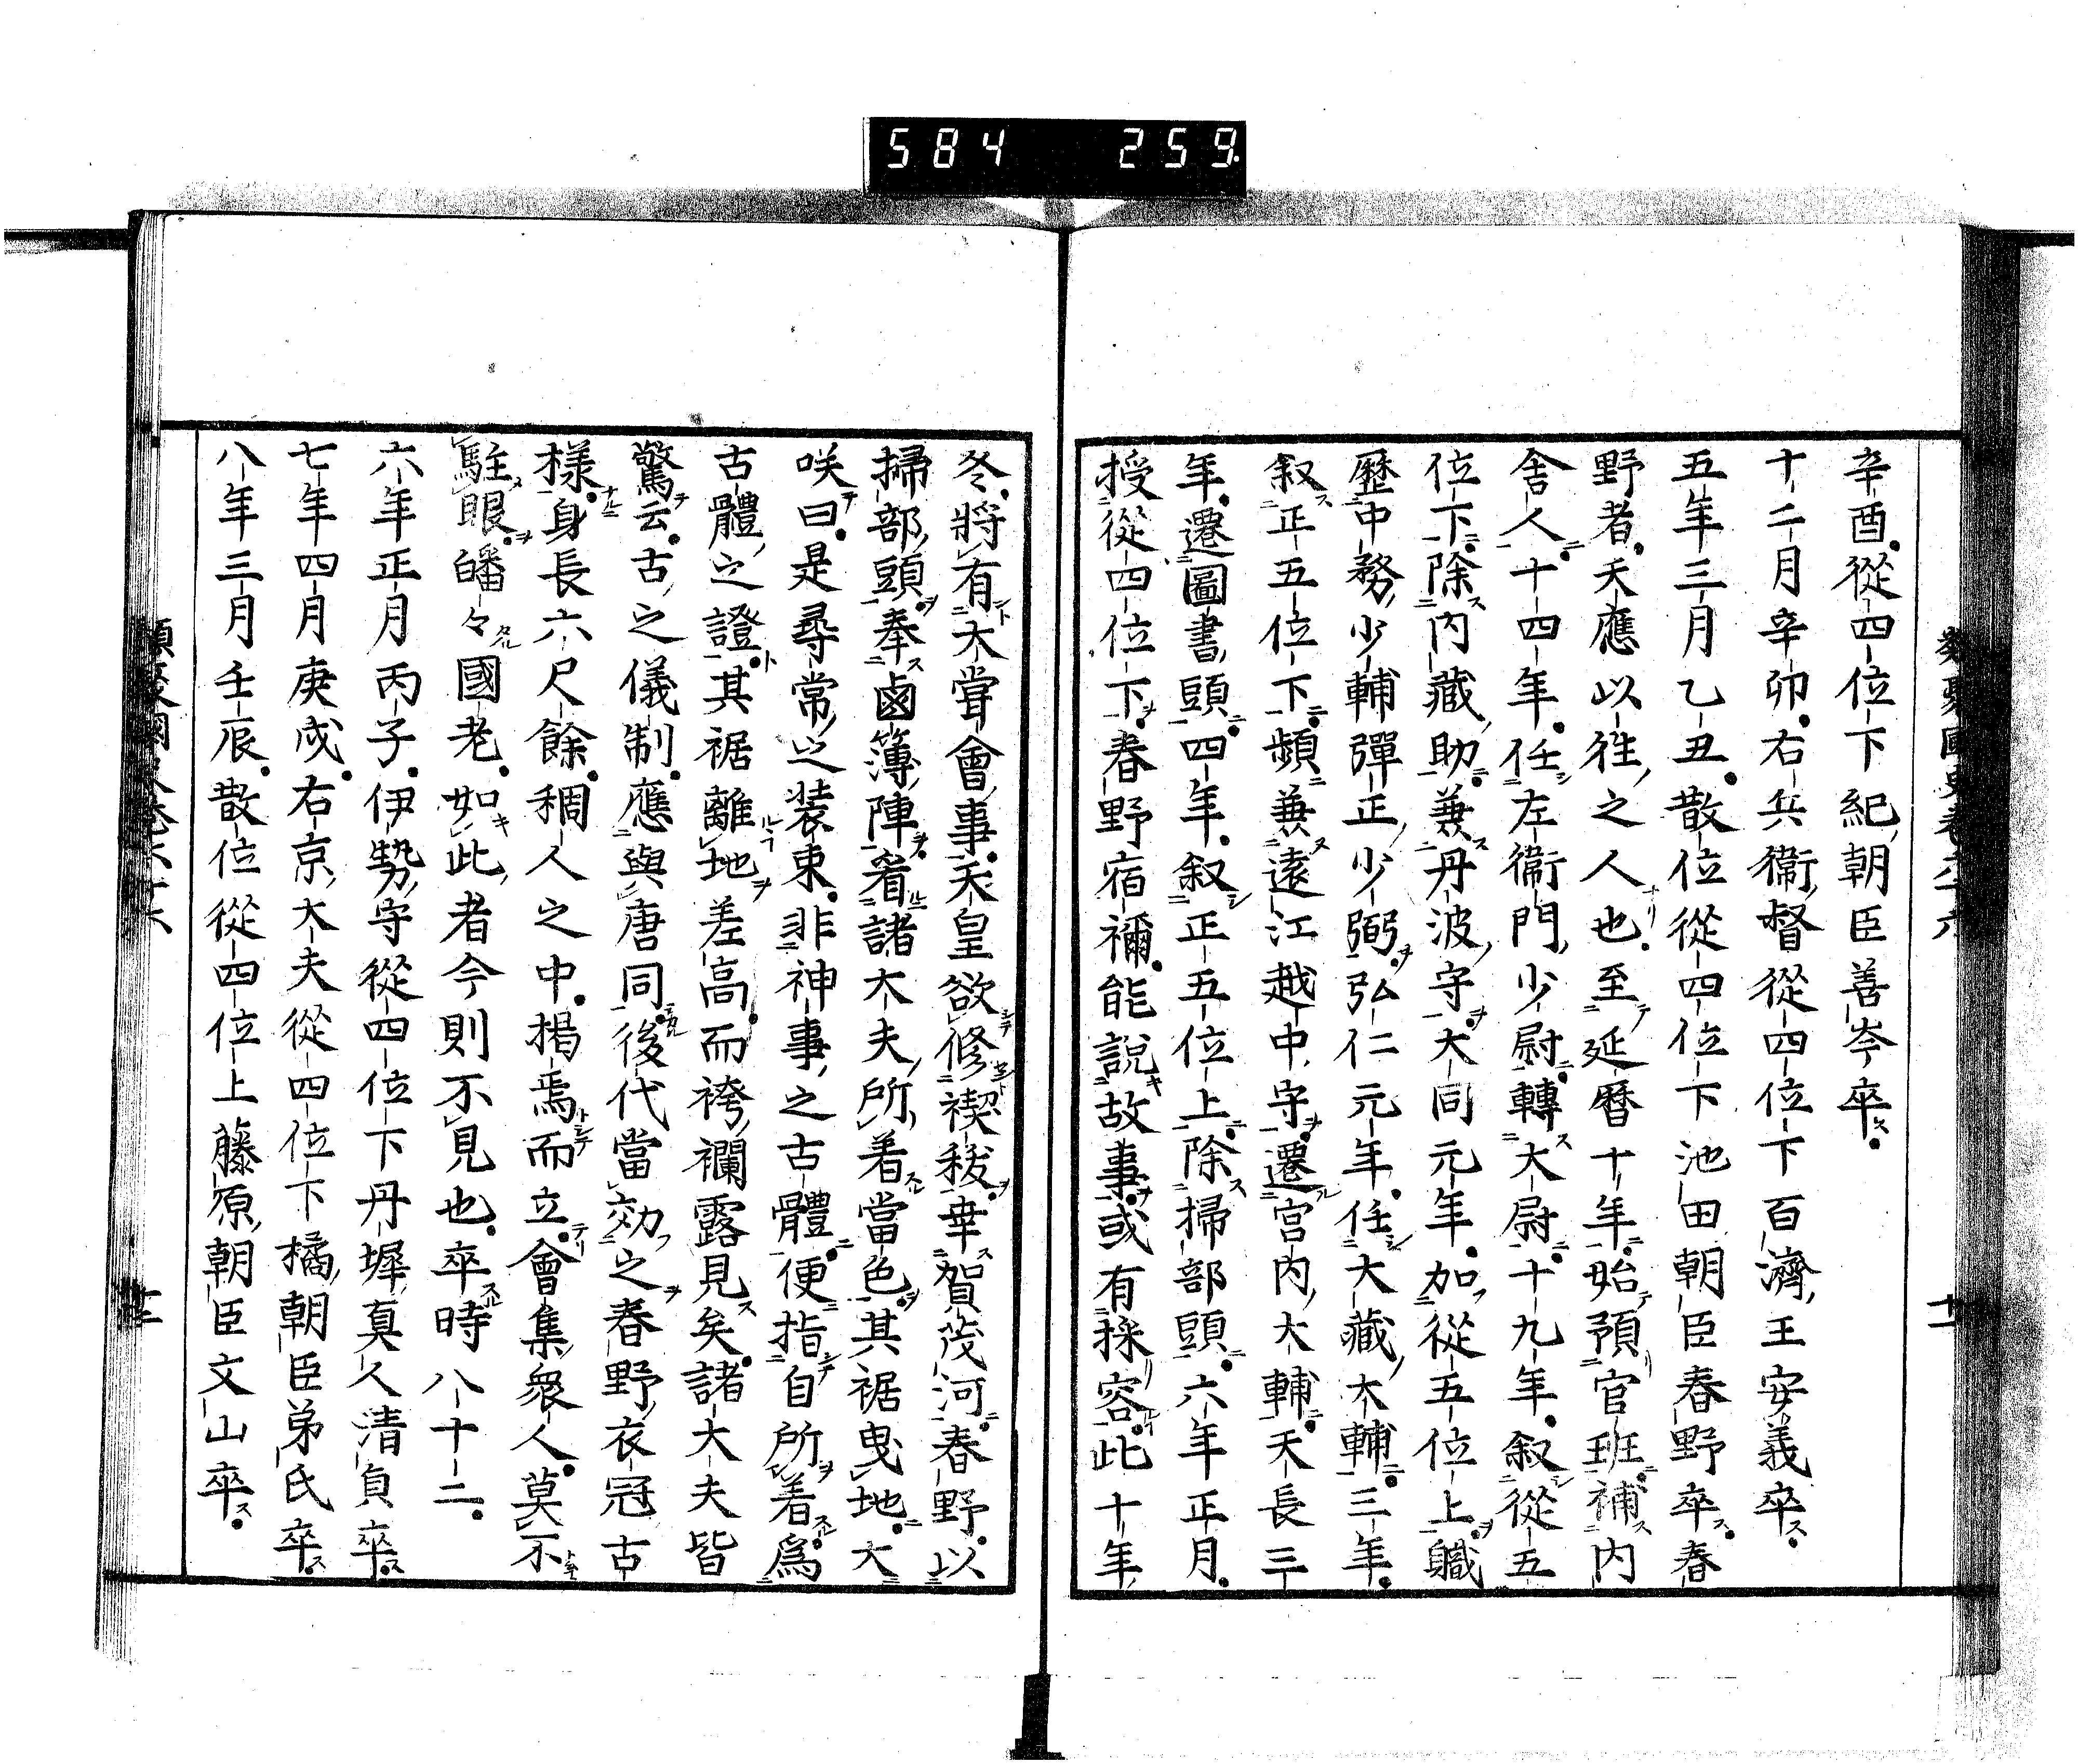 584 259
辛酉從四位下紀朝臣善岑卒ス
十二月辛卯右兵衞督從四位下百濟王安義卒ス
五年三月乙丑散位從四位下池田朝臣春野卒ス春
野者天應以往之人也至延暦十年始預官班補内
舍人十四年任左衞門少尉轉大尉十九年叙從五
位下除内藏助兼丹波守大同元年加從五位上職
歷中務少輔彈正少弼弘仁元年任大藏大輔三年
叙正五位下頻兼遠江越中守遷宮内大輔天長三
年遷圖書頭四年叙正五位上除掃部頭六年正月
授從四位下春野宿禰能說故事或有採容此十年
冬將有大甞會事天皇欲修禊秡幸賀茂河春野以
掃部頭奉鹵簿陣看諸大夫所着當色其裾曳地大
咲曰是尋常之装束非神事之古體便指自所着爲
古體之證其裾離地差高而袴襴露見矣諸大夫皆
驚云古之儀制應與唐同後代當効之春野衣冠古
樣身長六尺餘稠人之中掲焉而立會集衆人莫不
駐眼皤々國老如此者今則不見也卒時八十二
六年正月丙子伊勢守從四位下丹墀真人清貞卒ス
七年四月庚戌右京大夫從四位下橘朝臣弟氏卒ス
八年三月壬辰散位從四位上藤原朝臣文山卒ス